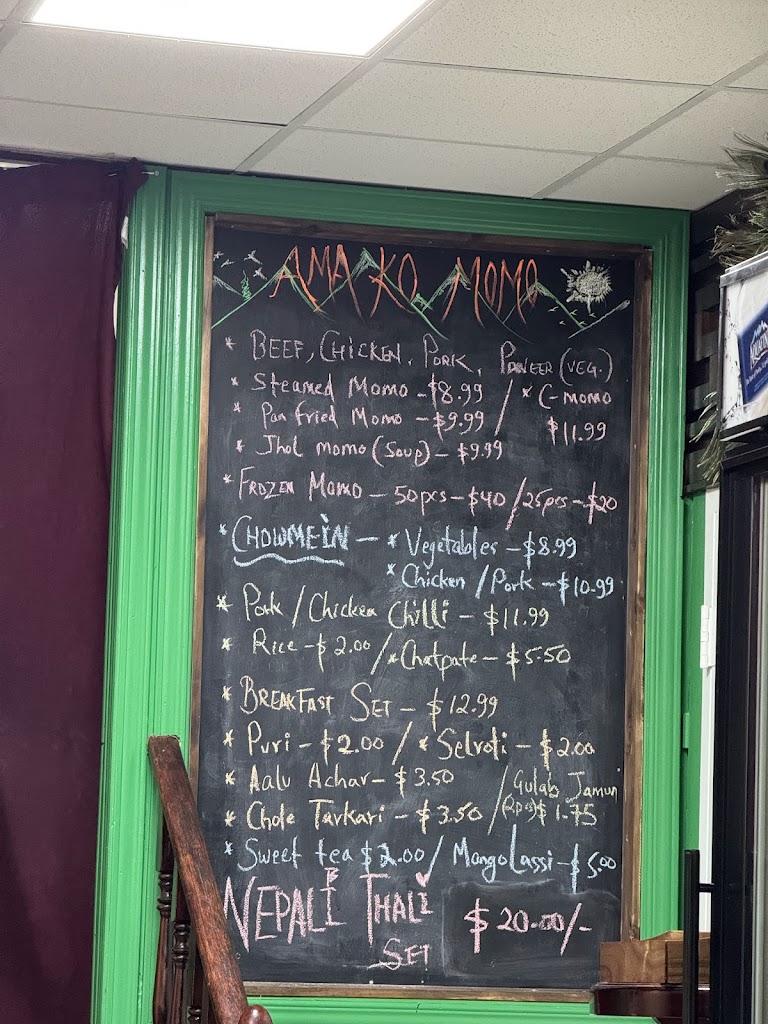 AMA KO MOMO
* BEEF, CHICKEN, PORK, PANEER (VEG.)
* Steamed Momo - $8.99 / * C-MOMO
* Pan fried Momo - $9.99 $11.99
* Jhol momo (Soup) - $9.99
* FROZEN MOMO - 50pcs - $40 / 25pcs - $20
* CHOWMEIN - * Vegetables - $8.99
* Chicken / Pork - $10.99
* Pork / Chicken Chilli - $11.99
* Rice - $2.00 / * Chatpate - $5.50
* BREAKFAST SET - $12.99
* Puri - $2.00 / * Selroti - $2.00
* Aalu Achar - $3.50 / Gulab Jamun
* Chole Tarkari - $3.50 / (2pcs) $1.75
* Sweet tea $2.00 / Mango Lassi - $5.00
NEPALI THALI
SET $20.00/-